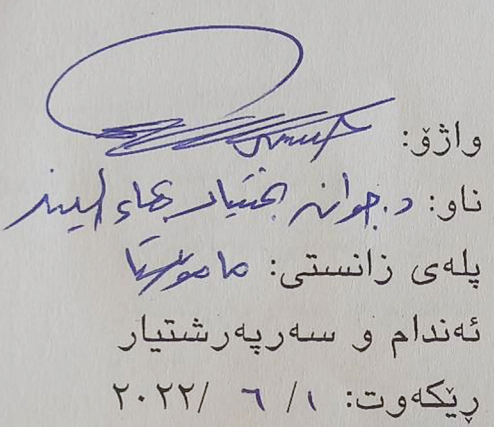 واژۆ:
ناو: د. جوان بختیار بهاء الدین
پلەی زانستی: مامۆستا
ئەندام و سەرپەرشتیار
ڕێکەوت: ١/ ٦ /٢٠٢٢